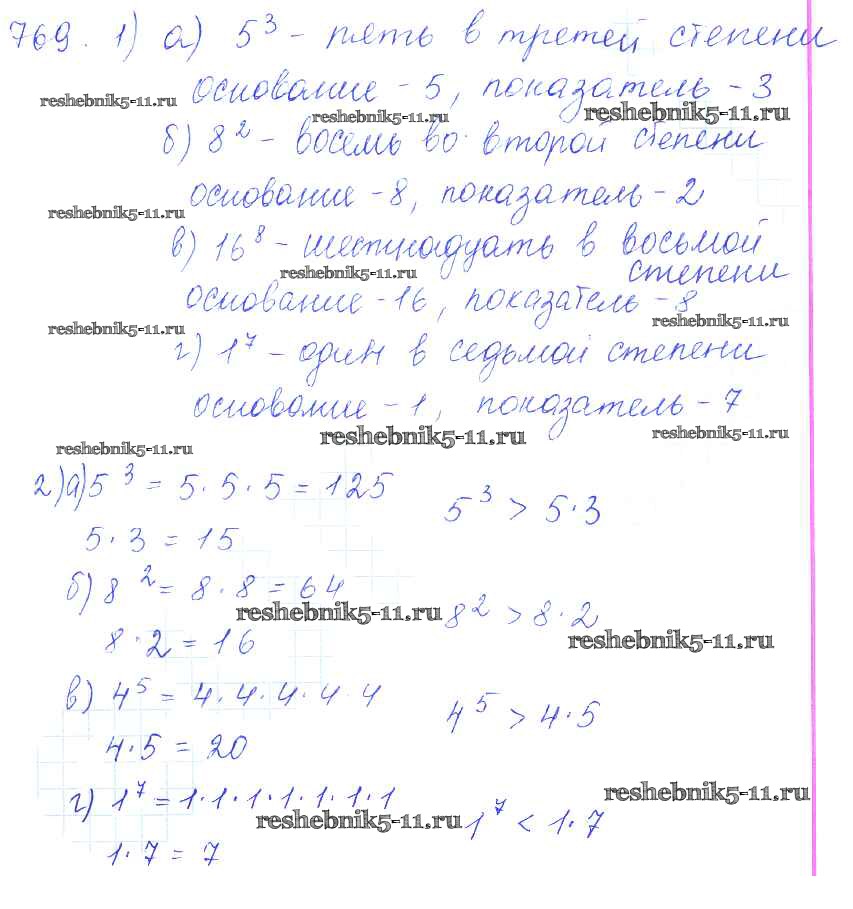 769. 1) а) 5³ - пять в третей степени
основание - 5, показатель - 3
reshebnik5-11.ru reshebnik5-11.ru reshebnik5-11.ru
б) 8² - восемь во второй степени
основание - 8, показатель - 2
reshebnik5-11.ru
в) 16⁸ - шестнадцать в восьмой
степени
reshebnik5-11.ru
основание - 16, показатель - 8
reshebnik5-11.ru reshebnik5-11.ru
г) 1⁷ - один в седьмой степени
основание - 1, показатель - 7
reshebnik5-11.ru reshebnik5-11.ru reshebnik5-11.ru
2) а) 5³ = 5·5·5 = 125 5³ > 5·3
5·3 = 15
б) 8² = 8·8 = 64 8² > 8·2
reshebnik5-11.ru reshebnik5-11.ru
8·2 = 16
в) 4⁵ = 4·4·4·4·4 4⁵ > 4·5
4·5 = 20
г) 1⁷ = 1·1·1·1·1·1·1 1⁷ < 1·7
reshebnik5-11.ru reshebnik5-11.ru
1·7 = 7